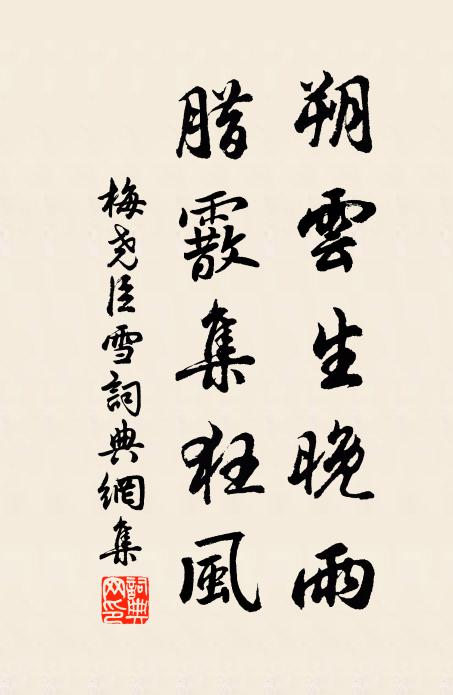 朔雲生晚雨
腊霰集狂風
梅堯臣雪詞典網集
詞典網印